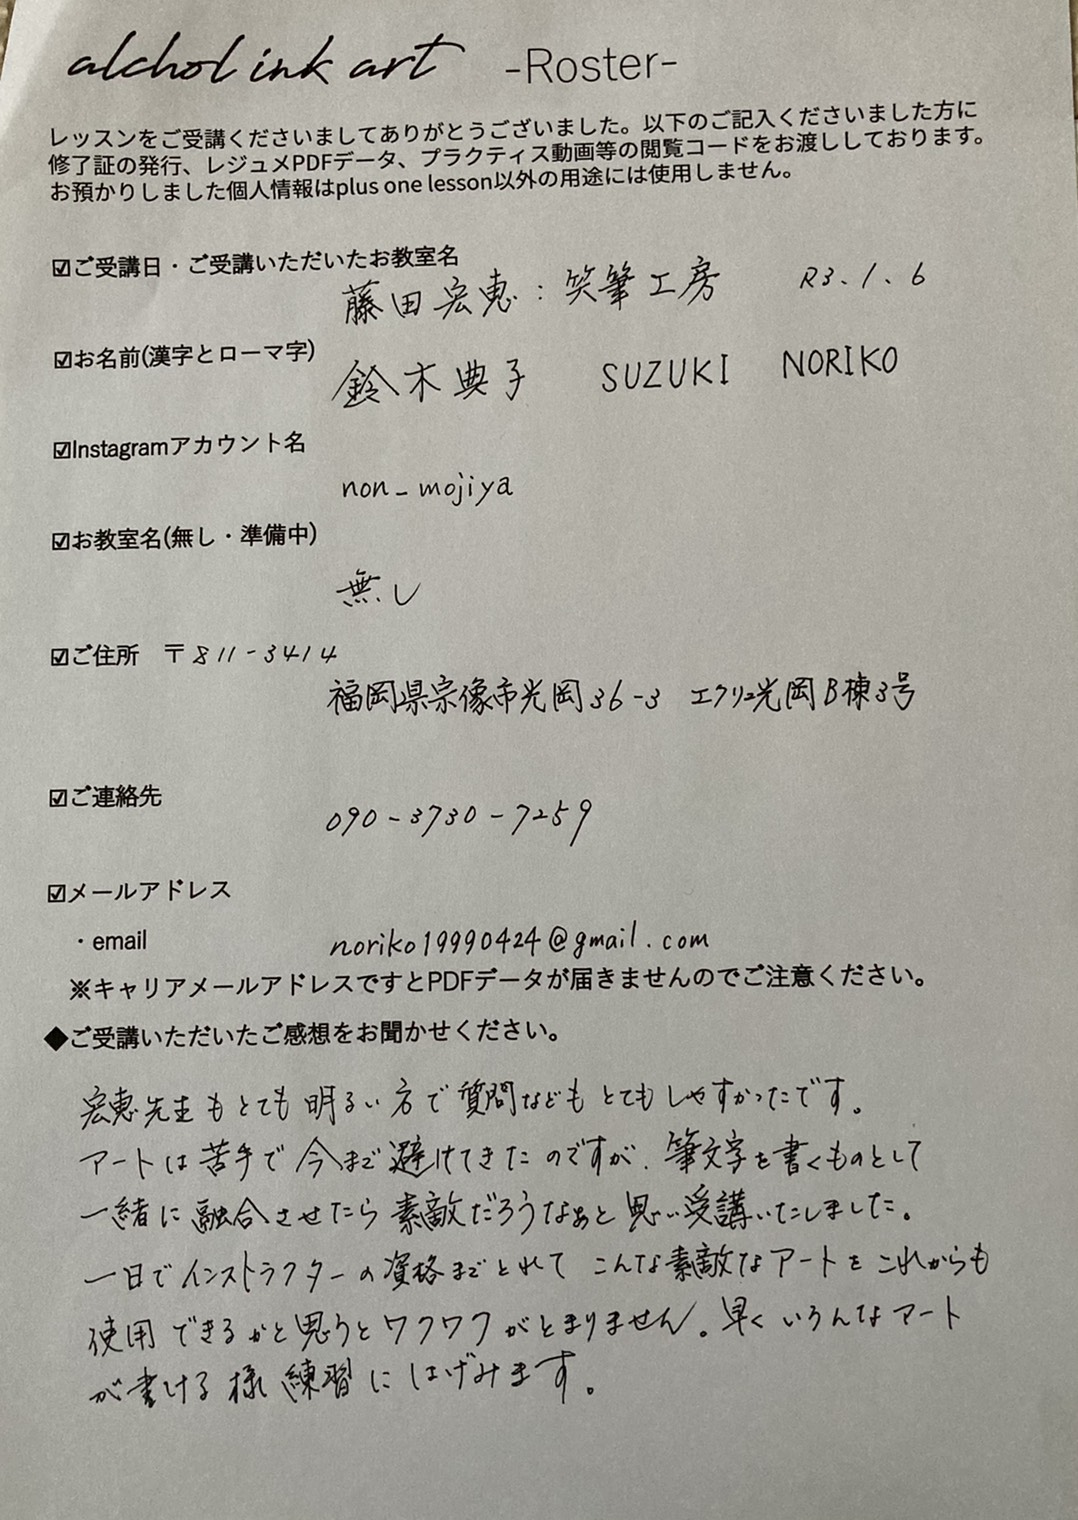 alchol ink art -Roster-
レッスンをご受講くださいましてありがとうございました。以下のご記入くださいました方に
修了証の発行、レジュメPDFデータ、プラクティス動画等の閲覧コードをお渡ししております。
お預かりしました個人情報はplus one lesson以外の用途には使用しません。
☑ご受講日・ご受講いただいたお教室名
藤田宏恵:笑筆工房 R3.1.6
☑お名前(漢字とローマ字)
鈴木典子 SUZUKI NORIKO
☑Instagramアカウント名
non_mojiya
☑お教室名(無し・準備中)
無し
☑ご住所 〒811-3414
福岡県宗像市光岡36-3 エクリュ光岡B棟3号
☑ご連絡先
090-3730-7259
☑メールアドレス
・email noriko19990424@gmail.com
※キャリアメールアドレスですとPDFデータが届きませんのでご注意ください。
◆ご受講いただいたご感想をお聞かせください。
宏恵先生もとても明るい方で質問などもとてもしやすかったです。
アートは苦手で今まで避けてきたのですが、筆文字を書くものとして
一緒に融合させたら素敵だろうなぁと思い受講いたしました。
一日でインストラクターの資格までとれてこんな素敵なアートをこれからも
使用できるかと思うとワクワクがとまりません。早くいろんなアート
が書ける様練習にはげみます。